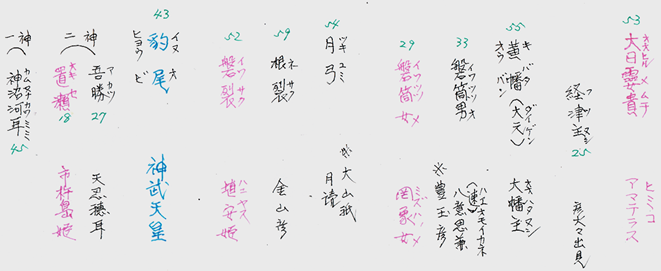 53
大日靈女貴
オオヒルメムチ
ヒミコ
アマテラス
経津主
フツヌシ
25
彦火々出見
55
黄幡(大元)
キバタ
オウバン
ダイゲン
大幡主
オオハタヌシ
33
磐筒男
イワツツオ
(速)
ハエオモイカネ
八意思兼
※豊玉彦
29
磐筒女
イワツツメ
罔象女
ミズハノメ
54
月弓
ツキユミ
※大山祇
月読
59
根裂
ネサク
金山彦
52
磐裂
イワサク
埴安姫
ハニヤス
43
豹尾
イヌオ
ヒョウビ
神武天皇
二神
吾勝
アカツ
27
天忍穂耳
置瀬
オキセ
18
市杵島姫
一神
神沼河耳
カムヌナカワミミ
45